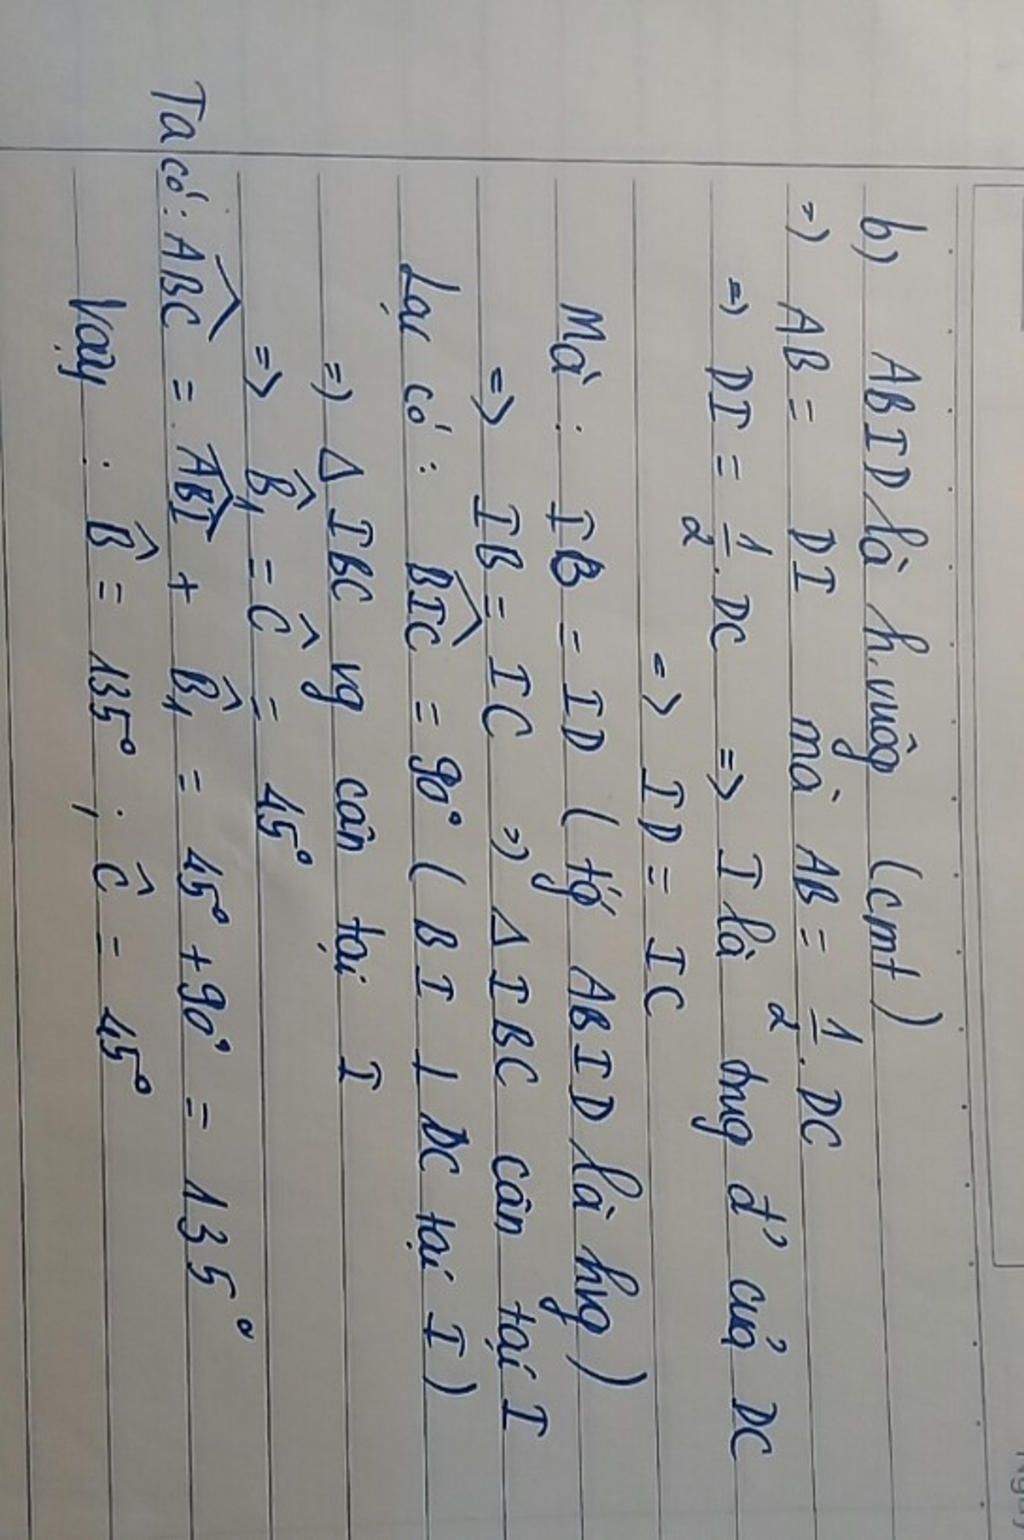 b) ABID là h.vuông (cmt)
=) AB = DI mà AB = 1/2 . DC
=) DI = 1/2 . DC => I là trug đ' của DC
=> ID = IC
Mà : IB = ID ( tg ABID là hvg )
=> IB = IC =) Δ IBC cân tại I
Lại có : \widehat{BIC} = 90° ( BI ⊥ DC tại I )
=) Δ IBC vg cân tại I
=> B̂₁ = Ĉ = 45°
Ta có : \widehat{ABC} = \widehat{ABI} + B̂₁ = 45° + 90° = 135°
Vậy : B̂ = 135° ; Ĉ = 45°